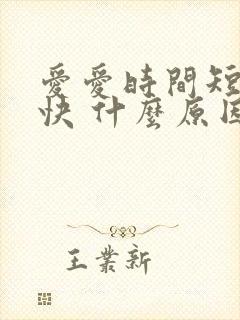 愛愛時間短
快 什麼原因
王業新